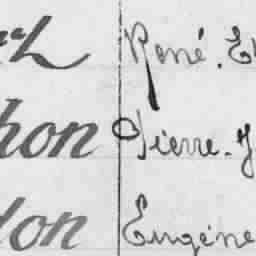 René. E
hon Pierre. J
don Eugène